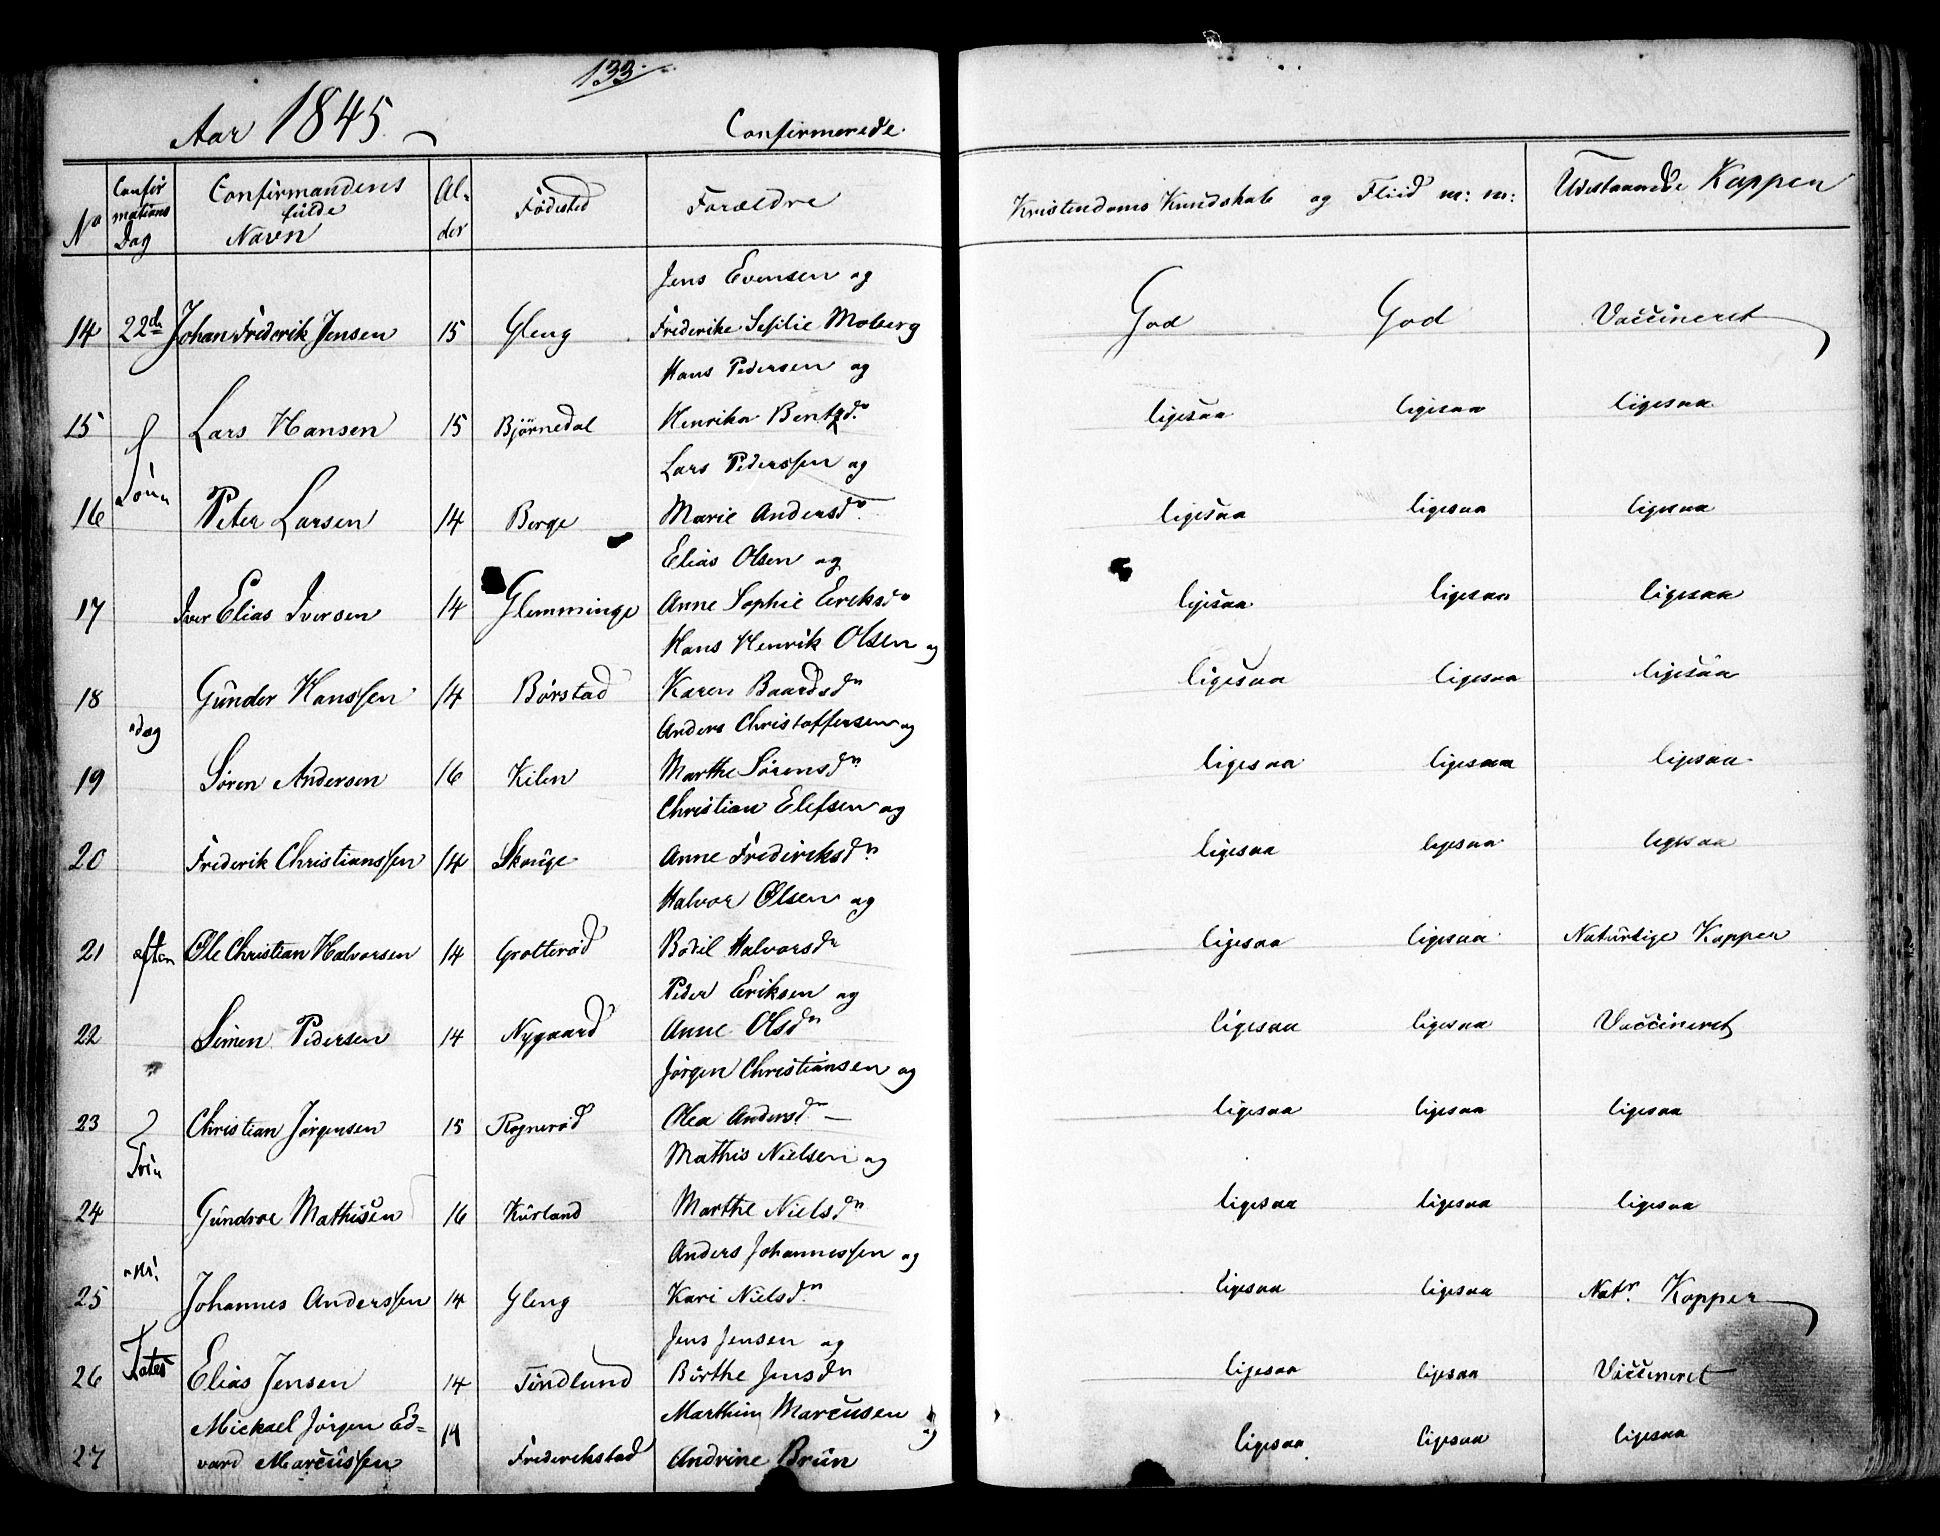 133.
Aar 1845
Confirmerede.
No Confirmations Dag Confirmandens fulde Navn Alder Fødested Forældre Kristendoms Kundskab og Fliid m: m: Udestaaende Koppen
Jens Evensen og
14 22de Johan Frederik Jensen 15 Gleng Frederike Moberg God God Vaccineret
Hans Pedersen og
15 Lars Hansen 15 Bjørnedal Henrika ligesaa ligesaa ligesaa
Lars Pederssen og
16 Søn Peter Larsen 14 Berge Marie Andersdr. ligesaa ligesaa ligesaa
Elias Olsen og
17 Iver Elias Iversen 14 Glemminge Anne Sophie Ericksdr ligesaa ligesaa ligesaa
Hans Henrik Olsen og
18 Gunder Hanssen 14 Børstad Karen Baardsdn ligesaa ligesaa ligesaa
dag Anders Christoffersen og
19 Søren Andersen 16 Kilen Marthe Sørensdn ligesaa ligesaa ligesaa
Christian Elefsen og
20 Frederik Christianssen 14 Skouge Anne Frederiksdn. ligesaa ligesaa ligesaa
Halvor Olsen og
21 efter Ole Christian Halvorsen 14 Grotterød Bodil Halvorsdn ligesaa ligesaa Naturlige Kopper
Peder Eriksen og
22 Simen Pedersen 14 Nygaard Anne Olsdn ligesaa ligesaa Vaccineret
Jørgen Christiansen og
23 Christian Jørgensen 15 Rognerød Olea Andersdn ligesaa ligesaa ligesaa
Trin Mathis Nielsen og
24 Gundroe Mathisen 16 Kurland Marthe Nielsdn ligesaa ligesaa ligesaa
ni. Anders Johannessen og
25 Johannes Anderssen 14 Gleng Kari Nielsdn ligesaa ligesaa Natr. Kopper
Jens Jensen og
26 tates Elias Jensen 14 Tindlund Børthe Jensdn ligesaa ligesaa Vaccineret
Mickael Jørgen Ed= 14 Marthin Marcusen og
27 vard Marcussen Frederikstad Andrine Brun ligesaa ligesaa ligesaa